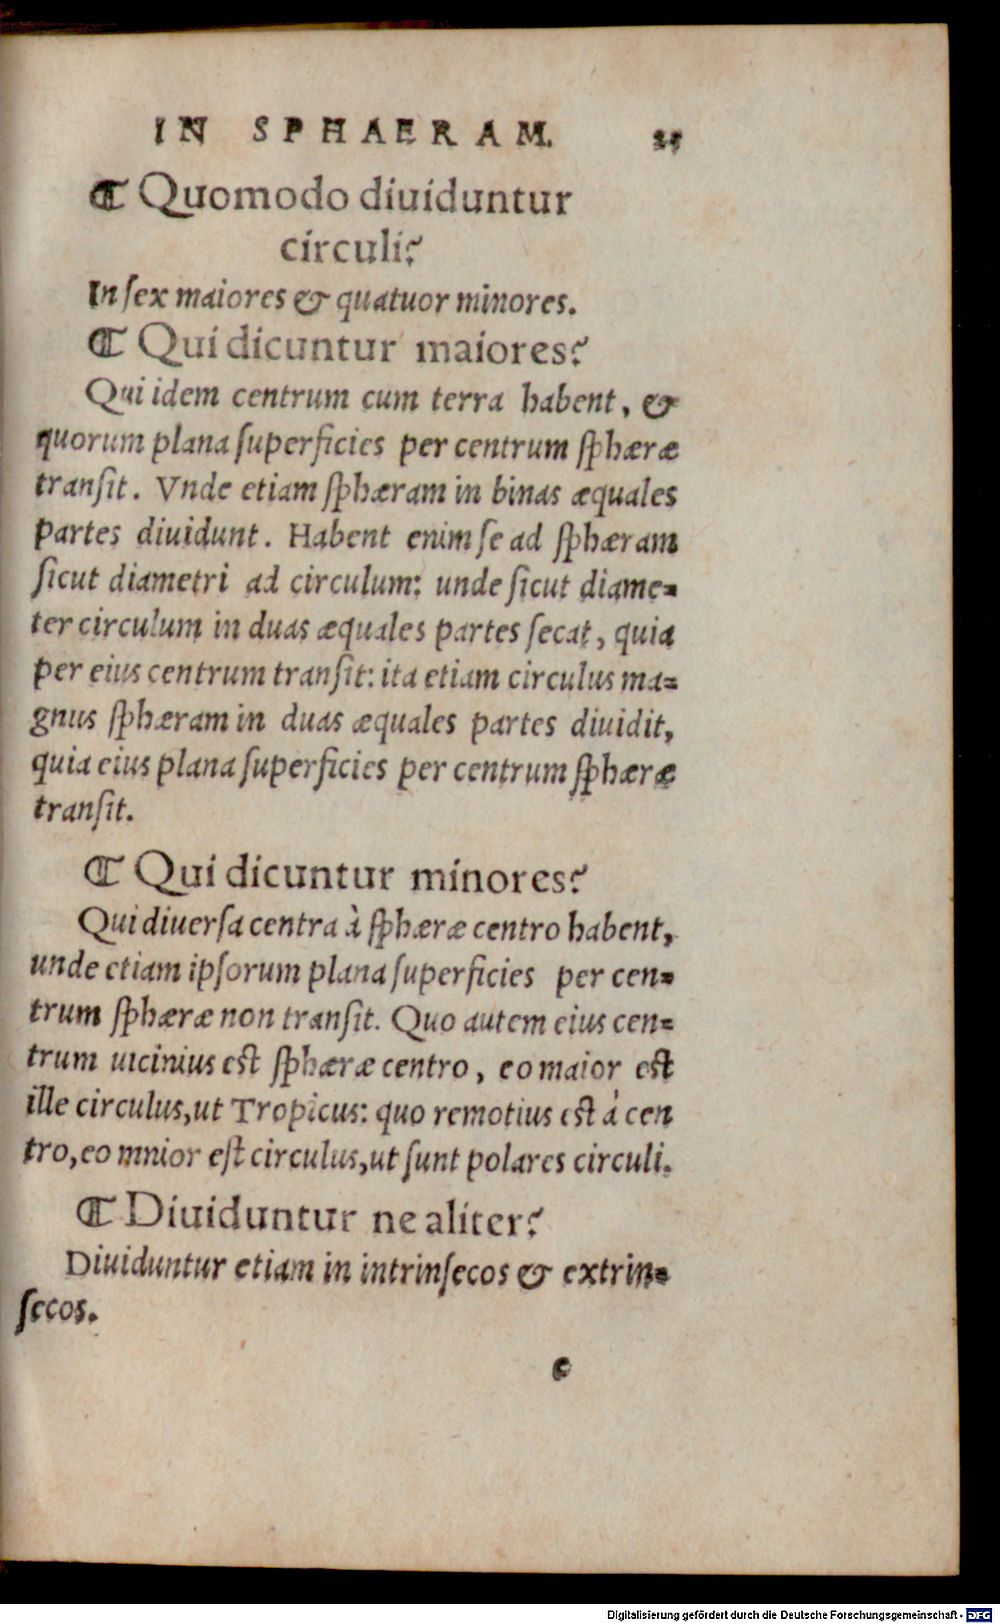 IN SPHAERAM. 25
¶ Quomodo diuiduntur
circuli?
In ſex maiores & quatuor minores.
¶ Qui dicuntur maiores?
Qui idem centrum cum terra habent, &
quorum plana ſuperficies per centrum ſphæræ
tranſit. Vnde etiam ſphæram in binas æquales
partes diuidunt. Habent enim ſe ad ſphæram
ſicut diametri ad circulum: unde ſicut diame-
ter circulum in duas æquales partes ſecat, quia
per eius centrum tranſit: ita etiam circulus ma-
gnus ſphæram in duas æquales partes diuidit,
quia eius plana ſuperficies per centrum ſphæræ
tranſit.
¶ Qui dicuntur minores?
Qui diuerſa centra à ſphæræ centro habent,
unde etiam ipſorum plana ſuperficies per cen-
trum ſphæræ non tranſit. Quo autem eius cen-
trum uicinius est ſphæræ centro, eo maior est
ille circulus, ut Tropicus: quo remotius est á cen
tro, eo mnior eſt circulus, ut ſunt polares circuli.
¶ Diuiduntur ne aliter?
Diuiduntur etiam in intrinſecos & extrin-
ſecos.
c
Digitalisierung gefördert durch die Deutsche Forschungsgemeinschaft - DFG